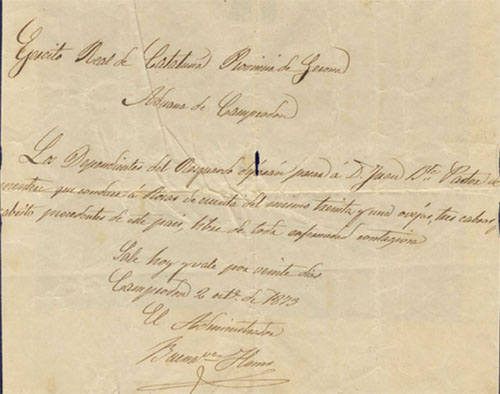 Ejercito Real de Cataluña Provincia de Gerona
Aduana de Camprodon
Los Dependientes del Resguardo dejarán pasar á D. Juan Bta. Pastor de
que conduce á Rosas de cuenta del mismo treinta y una ovejas, tres cabras y
cabrito procedentes de este pais, libre de toda enfermedad contagiosa
Sale hoy y vale por veinte dias
Camprodon 2 octe. de 1873
El Administrador
Buenave.